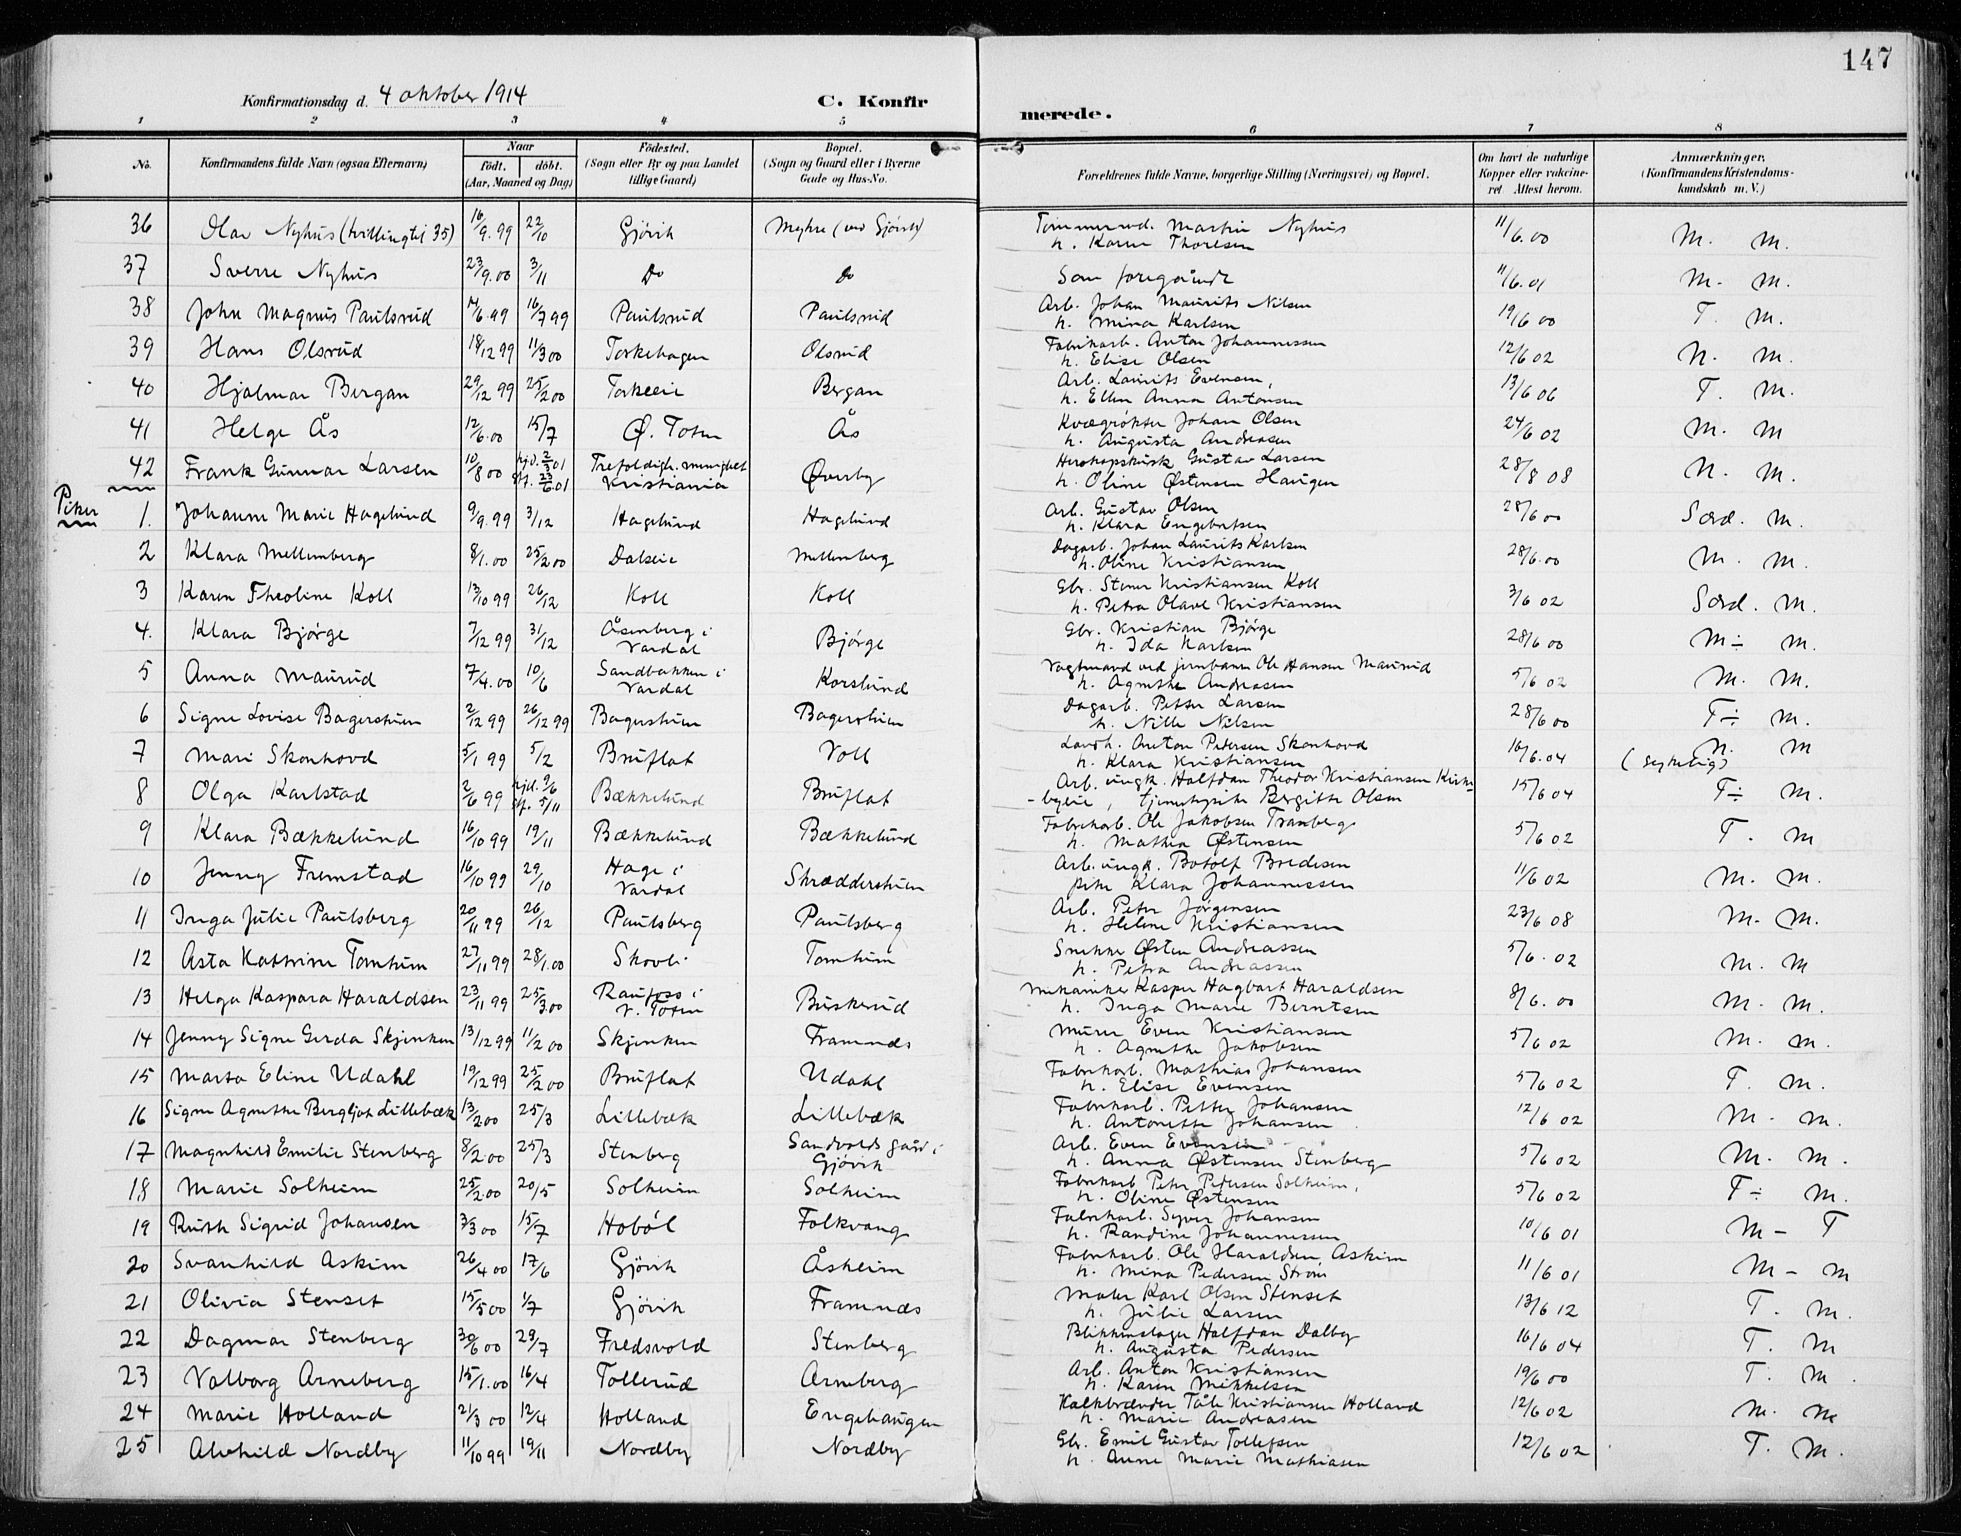 147
Konfirmationsdag d. 4 oktober 1914
C. Konfirmerede.
1 2 3 4 5 6 7 8
No. | Konfirmandens fulde Navn (ogsaa Efternavn) | Naar født. døbt. (Aar, Maaned og Dag) | Fødested. (Sogn eller By og paa Landet tillige Gaard) | Bopæl. (Sogn og Gaard eller i Byerne Gade og Hus-No. | Forældrenes fulde Navne, borgerlige Stilling (Næringsvei) og Bopæl. | Om havt de naturlige Kopper eller vakcineret Attest herom. | Anmærkninger. (Konfirmandens Kristendomskundskab m. V.)
36 Olav Nyhus (tvillingtil 35) 16/9.99 22/10 Gjövik Myhre (ved Gjövik) Tömmermd. Martin Nyhus h. Karen Thoresen 11/6.00 M. M.
37 Sverre Nyhus 23/9.00 3/11 Do Do Som foregående 11/6.01 M. M.
38 John Magnus Paulsrud 14/6.99 16/7 99 Paulsrud Paulsrud Arb. Johan Maurits Nilsen h. Mina Karlsen 19/6 00 T. M.
39 Hans Olsrud 18/12 99 11/3 00 Torkehagen Olsrud Fabrikarb. Anton Johannessen h. Elise Olsen 12/6 02 N. M.
40 Hjalmar Bergan 29/12 99 25/2 00 Torkeeie Bergan Arb. Laurits Evensen, h. Ellen Anna Antonsen 13/6 06 T. M.
41 Helge Ås 12/6.00 15/7 Ø. Toten Ås Kvægrøkter Johan Olsen h. Augusta Andreasen 24/6 02 M. M
42 Frank Gunnar Larsen 10/8 00 hjd. 2/5 01 stf. 23/6 01 Trefoldigh. menighet Kristiania Øverby Herskapskusk Gustav Larsen h. Oline Østensen Haugen 28/8 08 N. M.
Piker
1. Johanne Marie Hagelund 9/9.99 3/12 Hagelund Hagelund Arb. Gustav Olsen h. Klara Engebretsen 28/6 00 Særd. M.
2 Klara Mellumberg 8/1.00 25/2 00 Dalseie Mellemberg Dagarb. Johan Laurits Karlsen h. Oline Kristiansen 28/6.00 M. M.
3 Karen Theoline Koll 13/10 99 26/12 Koll Koll Gbr. Stener Kristiansen Koll h. Petra Olave Kristiansen 3/6 02 Særd. M.
4. Klara Bjørge 7/12 99 31/12 Åsenberg i Vardal Bjørge Gbr. Kristian Bjørge h. Ida Karlsen 28/6 00 M÷ M.
5 Anna Maurud 7/4.00 10/6 Sandbakken i Vardal Korslund Vagtmand ved jernbanen Ole Hansen Maurud h. Agnethe Andreasen 5/6 02 M. M.
6 Signe Lovise Bagerstuen 2/12 99 26/12 99 Bagerstuen Bagerstuen Dagarb. Petter Larsen h. Nille Nilsen 28/6 00 T÷ M.
7 Mari Skonhovd 5/1 99 5/12 Bruflat Voll Landh. Anton Pedersen Skonhovd h. Klara Kristiansen 16/6.04 N. M (sykelig)
8 Olga Karlstad 2/6 99 hjd. 9/6 stf. 5/11 Bækkelund Bruflat Arb. ungk. Halfdan Theodor Kristiansen Kirkebyeie, tjenestepike Bergitte Olsen 15/6 04 T÷ M.
9 Klara Bækkelund 16/10 99 19/11 Bækkelund Bækkelund Fabrikarb. Ole Jakobsen Tranberg h. Mathea Østensen 5/6 02 T. M
10 Jenny Fremstad 16/10 99 29/10 Hage i Vardal Skrædderstuen Arb. ungk. Botolf Bredesen pike Klara Johannessen 11/6 02 M. M.
11 Inga Julie Paulsberg 20/11 99 26/12 Paulsberg Paulsberg Arb. Peter Jørgensen h. Helene Kristiansen 23/6 08 M. M.
12 Asta Kathrine Tomtum 27/11 99 28/1.00 Skovli Tomtum Snekker Østen Andreassen h. Petra Andreassen 5/6. 02 M. M
13 Helga Kaspara Haraldsen 23/11 99 25/3.00 Raufoss i V. Toten Buskerud Mekaniker Kasper Hagbart Haraldsen h. Inga Marie Berntsen 8/6.00 M. M.
14 Jenny Signe Gerda Skjenken 13/12 99 11/2 00 Skjenken Framnæs Murer Even Kristiansen h. Agnethe Jakobsen 5/6 02 M. M.
15 Marta Eline Udahl 19/12 99 25/2 00 Bruflat Udahl Fabrikarb. Mathias Johansen h. Elise Evensen 5/6 02 T. M.
16 Signe Agnethe Bergljot Lillebæk 13/2 00 25/3 Lillebæk Lillebæk Fabrikarb. Petter Johansen h. Antonette Johansen 12/6 02 M. M.
17 Magnhild Emilie Stenberg 8/2 00 25/3 Stenberg Sandvolds gård i Gjövik Arb. Even Evensen h. Anna Østensen Stenberg 5/6 02 M. M.
18 Marie Solheim 25/2.00 20/5 Solheim Solheim Fabrikarb Peter Pedersen Solheim, h. Oline Østensen 5/6 02 T÷ M.
19 Ruth Sigrid Johansen 3/3 00 15/7 Hobøl Folkvang Fabrikarb. Syver Johansen h. Randine Johannessen 10/6 01 M - T
20 Svanhild Askim 26/4 00 17/6 Gjövik Åsheim Fabrikarb. Ole Haraldsen Askim h. Mina Pedersen Strøm 11/6 01 M - M
21 Olivia Stenset 15/5 00 1/7 Gjövik Framnæs Maler Karl Olsen Stenset h. Julie Larsen 13/6 12 T. M.
22 Dagmar Stenberg 30/6 00 29/7 Fredsvold Stenberg Blikkenslager Halfdan Dalby h. Augusta Pedersen 16/6 04 T. M
23 Valborg Arneberg 15/1.00 16/4 Tollerud Arneberg Arb. Anton Kristiansen h. Karen Mikkelsen 19/6 00 T. M.
24 Marie Holland 21/3 00 12/4 Holland Engehaugen Kalkbrænder Tåle Kristiansen Holland h. Marie Andreasen 12/6 02 M. M
25 Alvhild Nordby 11/10 99 19/11 Nordby Nordby Gbr. Emil Gustav Tollefsen h. Anne Marie Mathiasen 12/6 02 T. M.